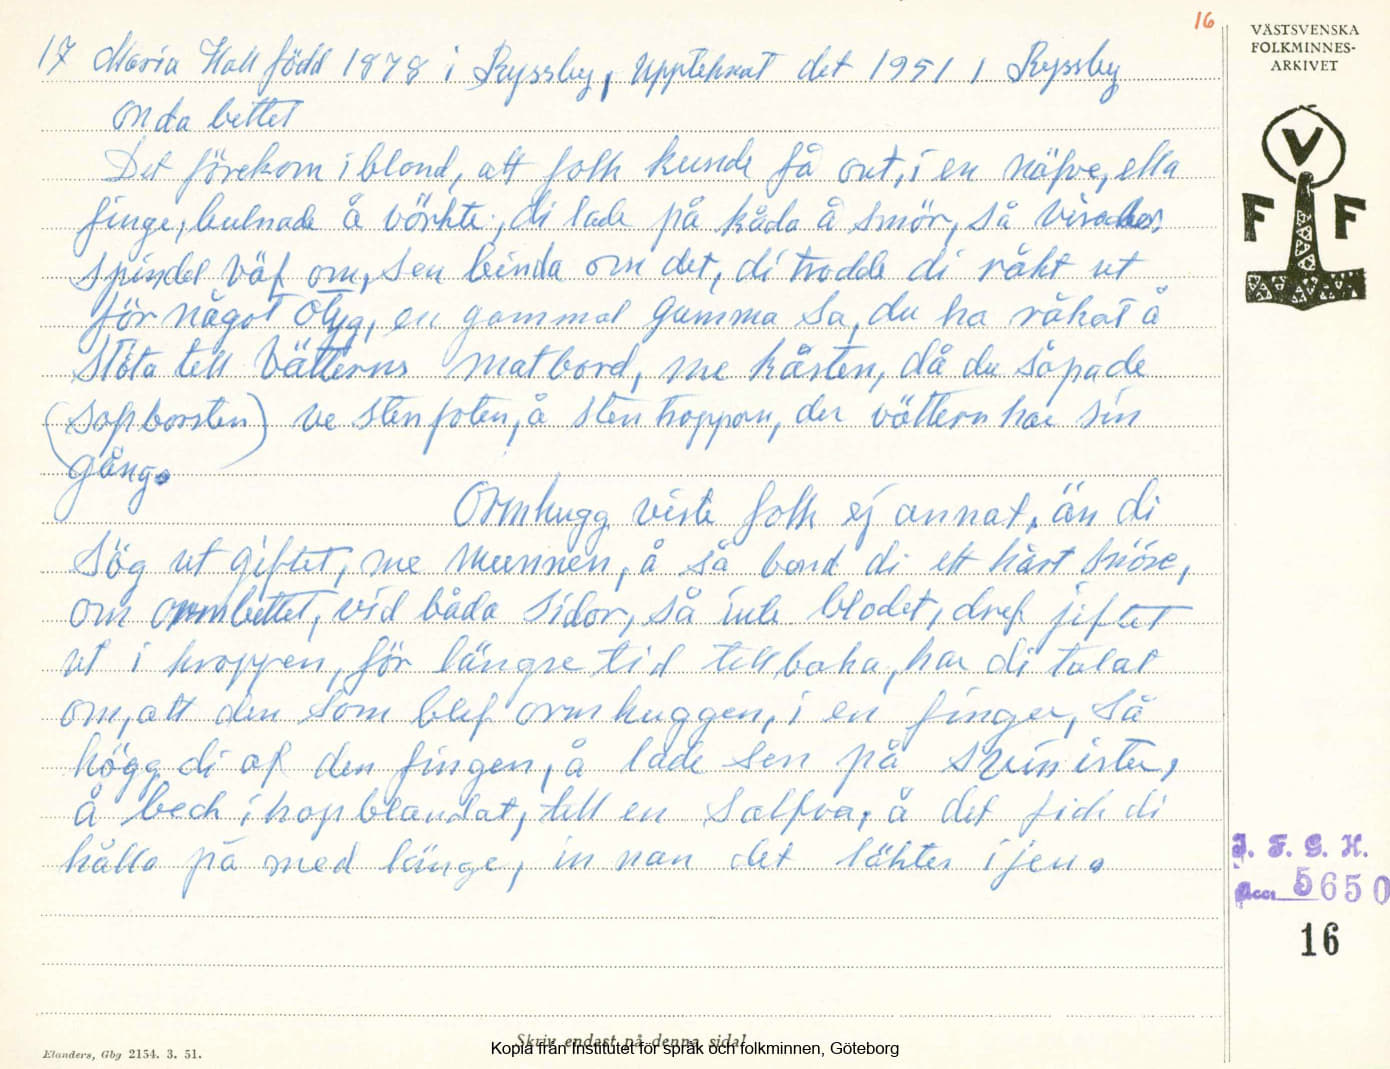 16
VÄSTSVENSKA
FOLKMINNES-
ARKIVET
17 Maria Hall född 1878 i Ryssby, upptehnat det 1951 i Ryssby
Onda bettet
Det förekom iblond, att folk kunde få ont, i en näfve, ella
finge, bulnade å vörkte, di lade på kåda å smör, så virades
spindel väf om, sen binda om det, di trodde di råkt ut
för något otyg, en gammal gumma sa, du ha råkat å
stöta till Vätterns matbord, me kåsten, då du såpade
(sopborsten) ve stenfoten, å stentroppan, der vättern har sin
gång.
Ormhugg viste folk ej annat, än di
sög ut giftet, me munnen, å så bond di ett hårt snöre,
om ormbettet, vid båda sidor, så inte blodet, dref jiftet
ut i kroppen, för längre tid tillbaka, har di talat
om, att den som blef ormhuggen, i en finger, så
högg di af den fingen, å lade sen på svinister,
å bech ihopblandat, till en salfva, å det fick di
hålla på med länge, in nan det läkter ijen.
V
F F
I. F. G. H.
Acc. 5650
16
Skriv endast på denna sida!
Elanders, Gbg 2154. 3. 51.
Kopia från Institutet för språk och folkminnen, Göteborg